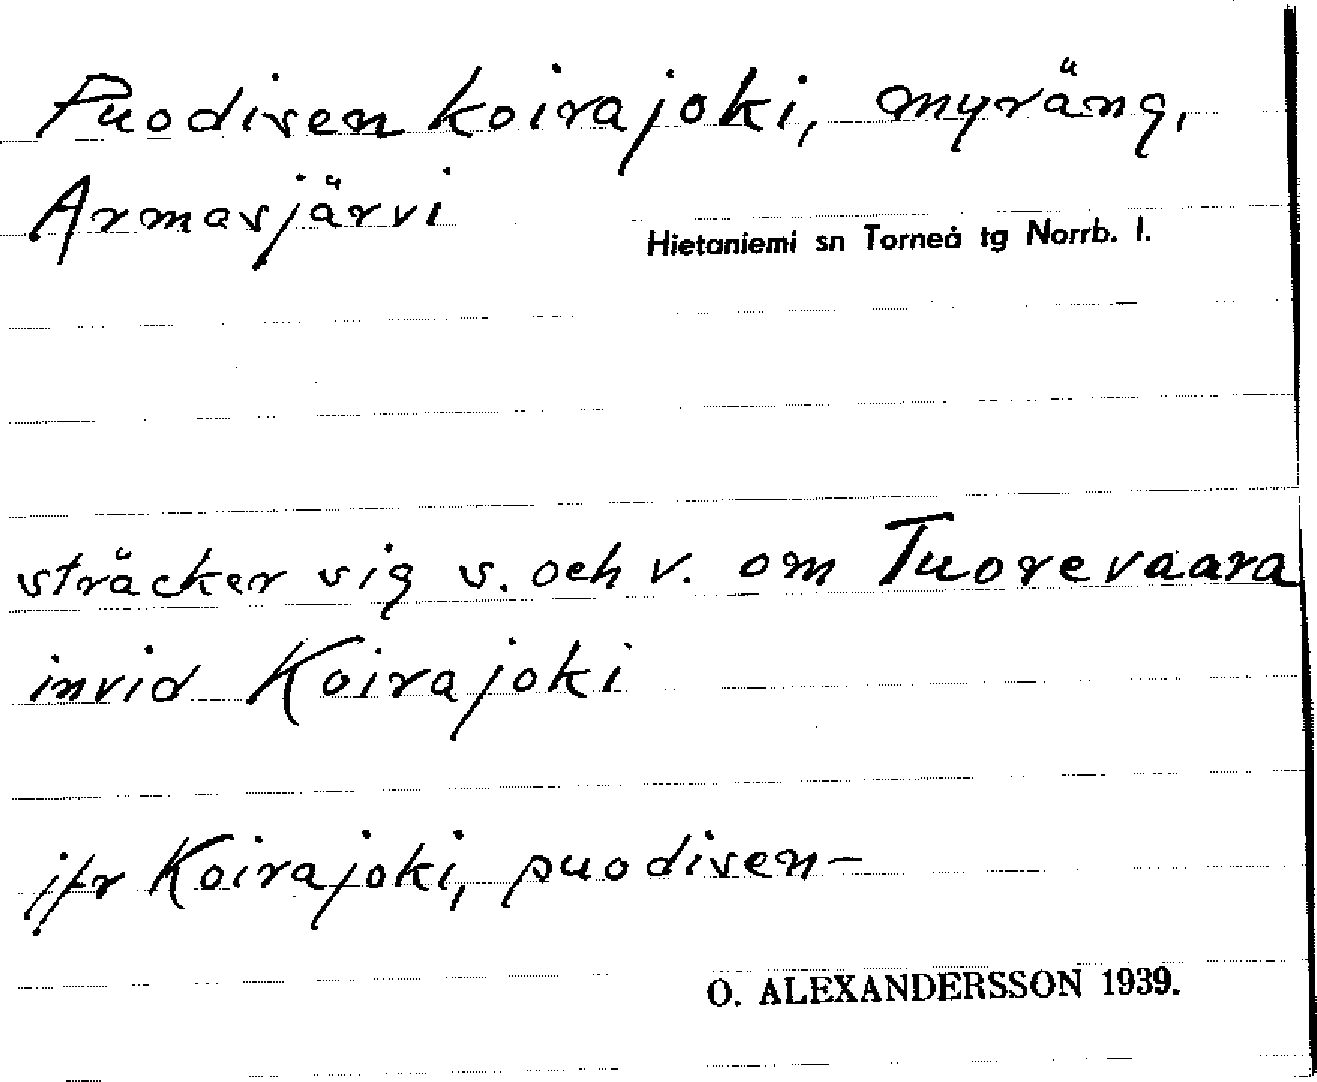 Puodisen koirajoki, myräng,
Armasjärvi
Hietaniemi sn Torneå tg Norrb. l.
sträcker sig s. och v. om Tuorevaara
invid Koirajoki
jfr Koirajoki, puodisen-
O. ALEXANDERSSON 1939.